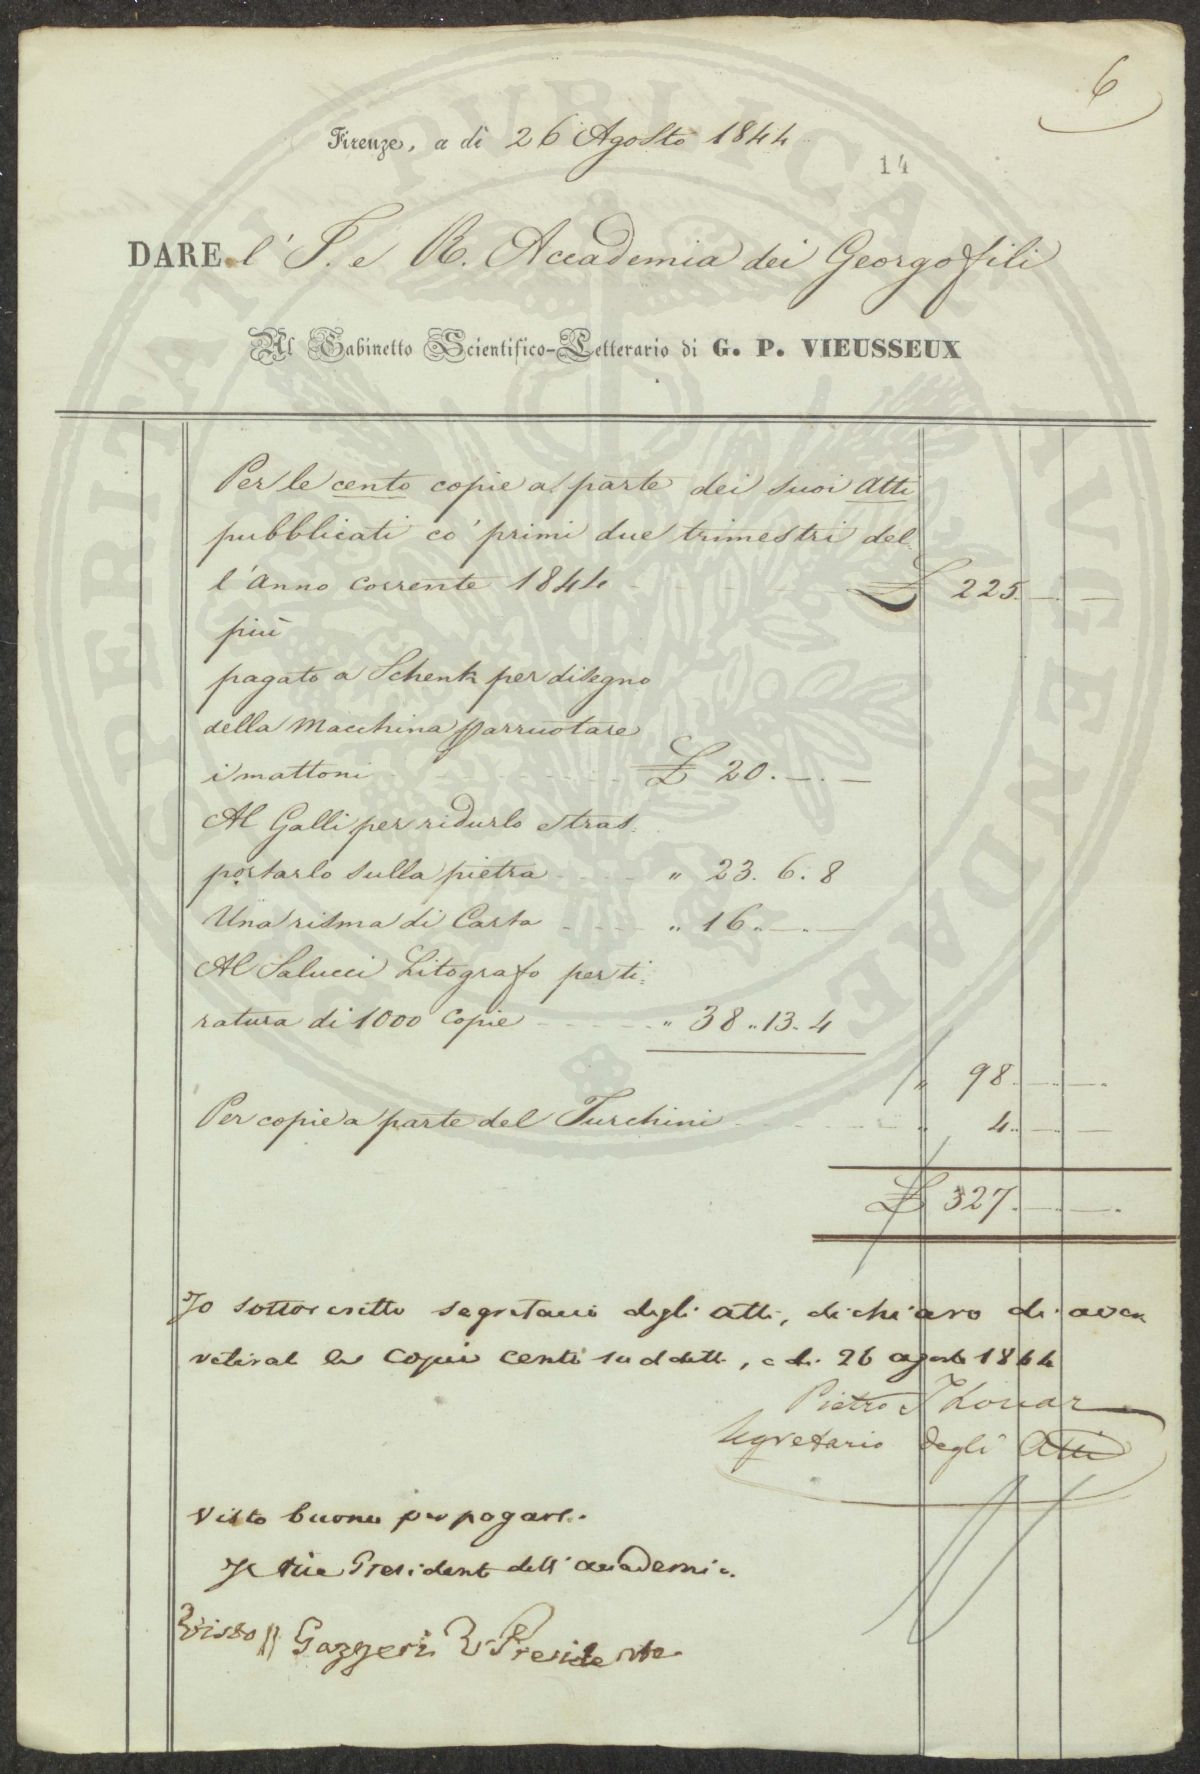 6
Firenze, a dì 26 Agosto 1844
14
DARE l' I. e R. Accademia dei Georgofili
Al Gabinetto Scientifico-Letterario di G. P. VIEUSSEUX
Per le cento copie a parte dei suoi Atti
pubblicati co' primi due trimestri del-
l'Anno corrente 1844 £ 225. — . —
più
pagato a Schenk per disegno
della Macchina p arruotare
i mattoni £ 20. — . —
Al Galli per ridurlo e tras:
portarlo sulla pietra „ 23. 6. 8
Una risma di Carta „ 16. — . —
Al Salucci Litografo per ti:
ratura di 1000 Copie „ 38. 13. 4
„ 98. — . —
Per copie a parte del Turchini „ 4. — . —
£ 327. — . —
Io sottoscritto segretario degli atti, dichiaro di aver
le copie cento suddette, a di 26 agosto 1844
Pietro Thouar
Segretario degli Atti
Visto buono per pagare.
Il vice President dell'accademia
Visto Gazzeri V. Presidente
PUBLICAE
PROSPERITATI
AUGENDAE